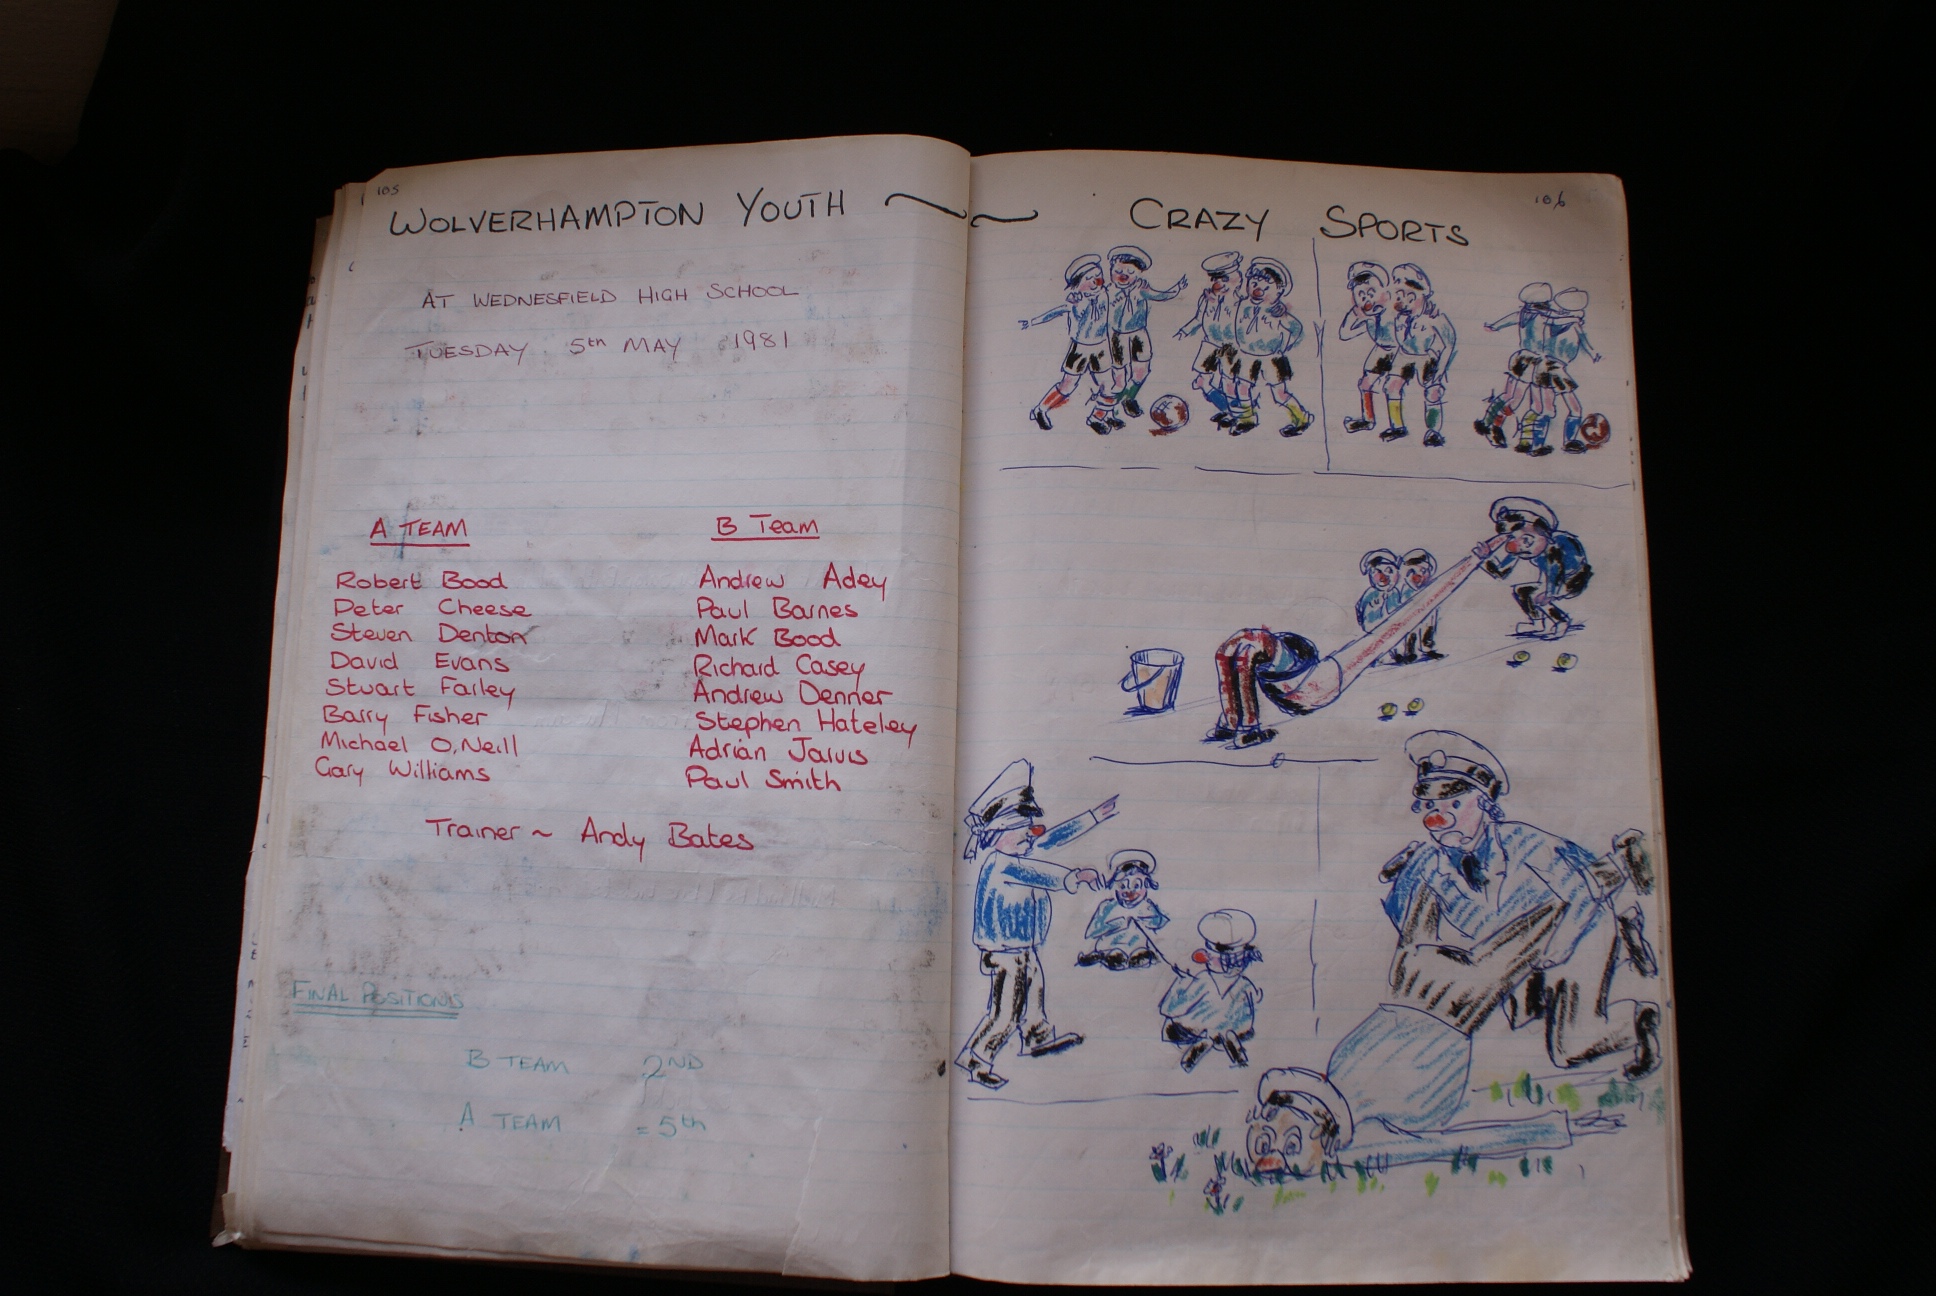 105
WOLVERHAMPTON YOUTH ~~ CRAZY SPORTS
106
AT WEDNESFIELD HIGH SCHOOL
TUESDAY 5th MAY 1981
A TEAM
Robert Bood
Peter Cheese
Steven Denton
David Evans
Stuart Farley
Barry Fisher
Michael O,Neill
Gary Williams
B Team
Andrew Adey
Paul Barnes
Mark Bood
Richard Casey
Andrew Denner
Stephen Hateley
Adrian Jarvis
Paul Smith
Trainer ~ Andy Bates
FINAL POSITIONS
B TEAM 2ND
A TEAM = 5th